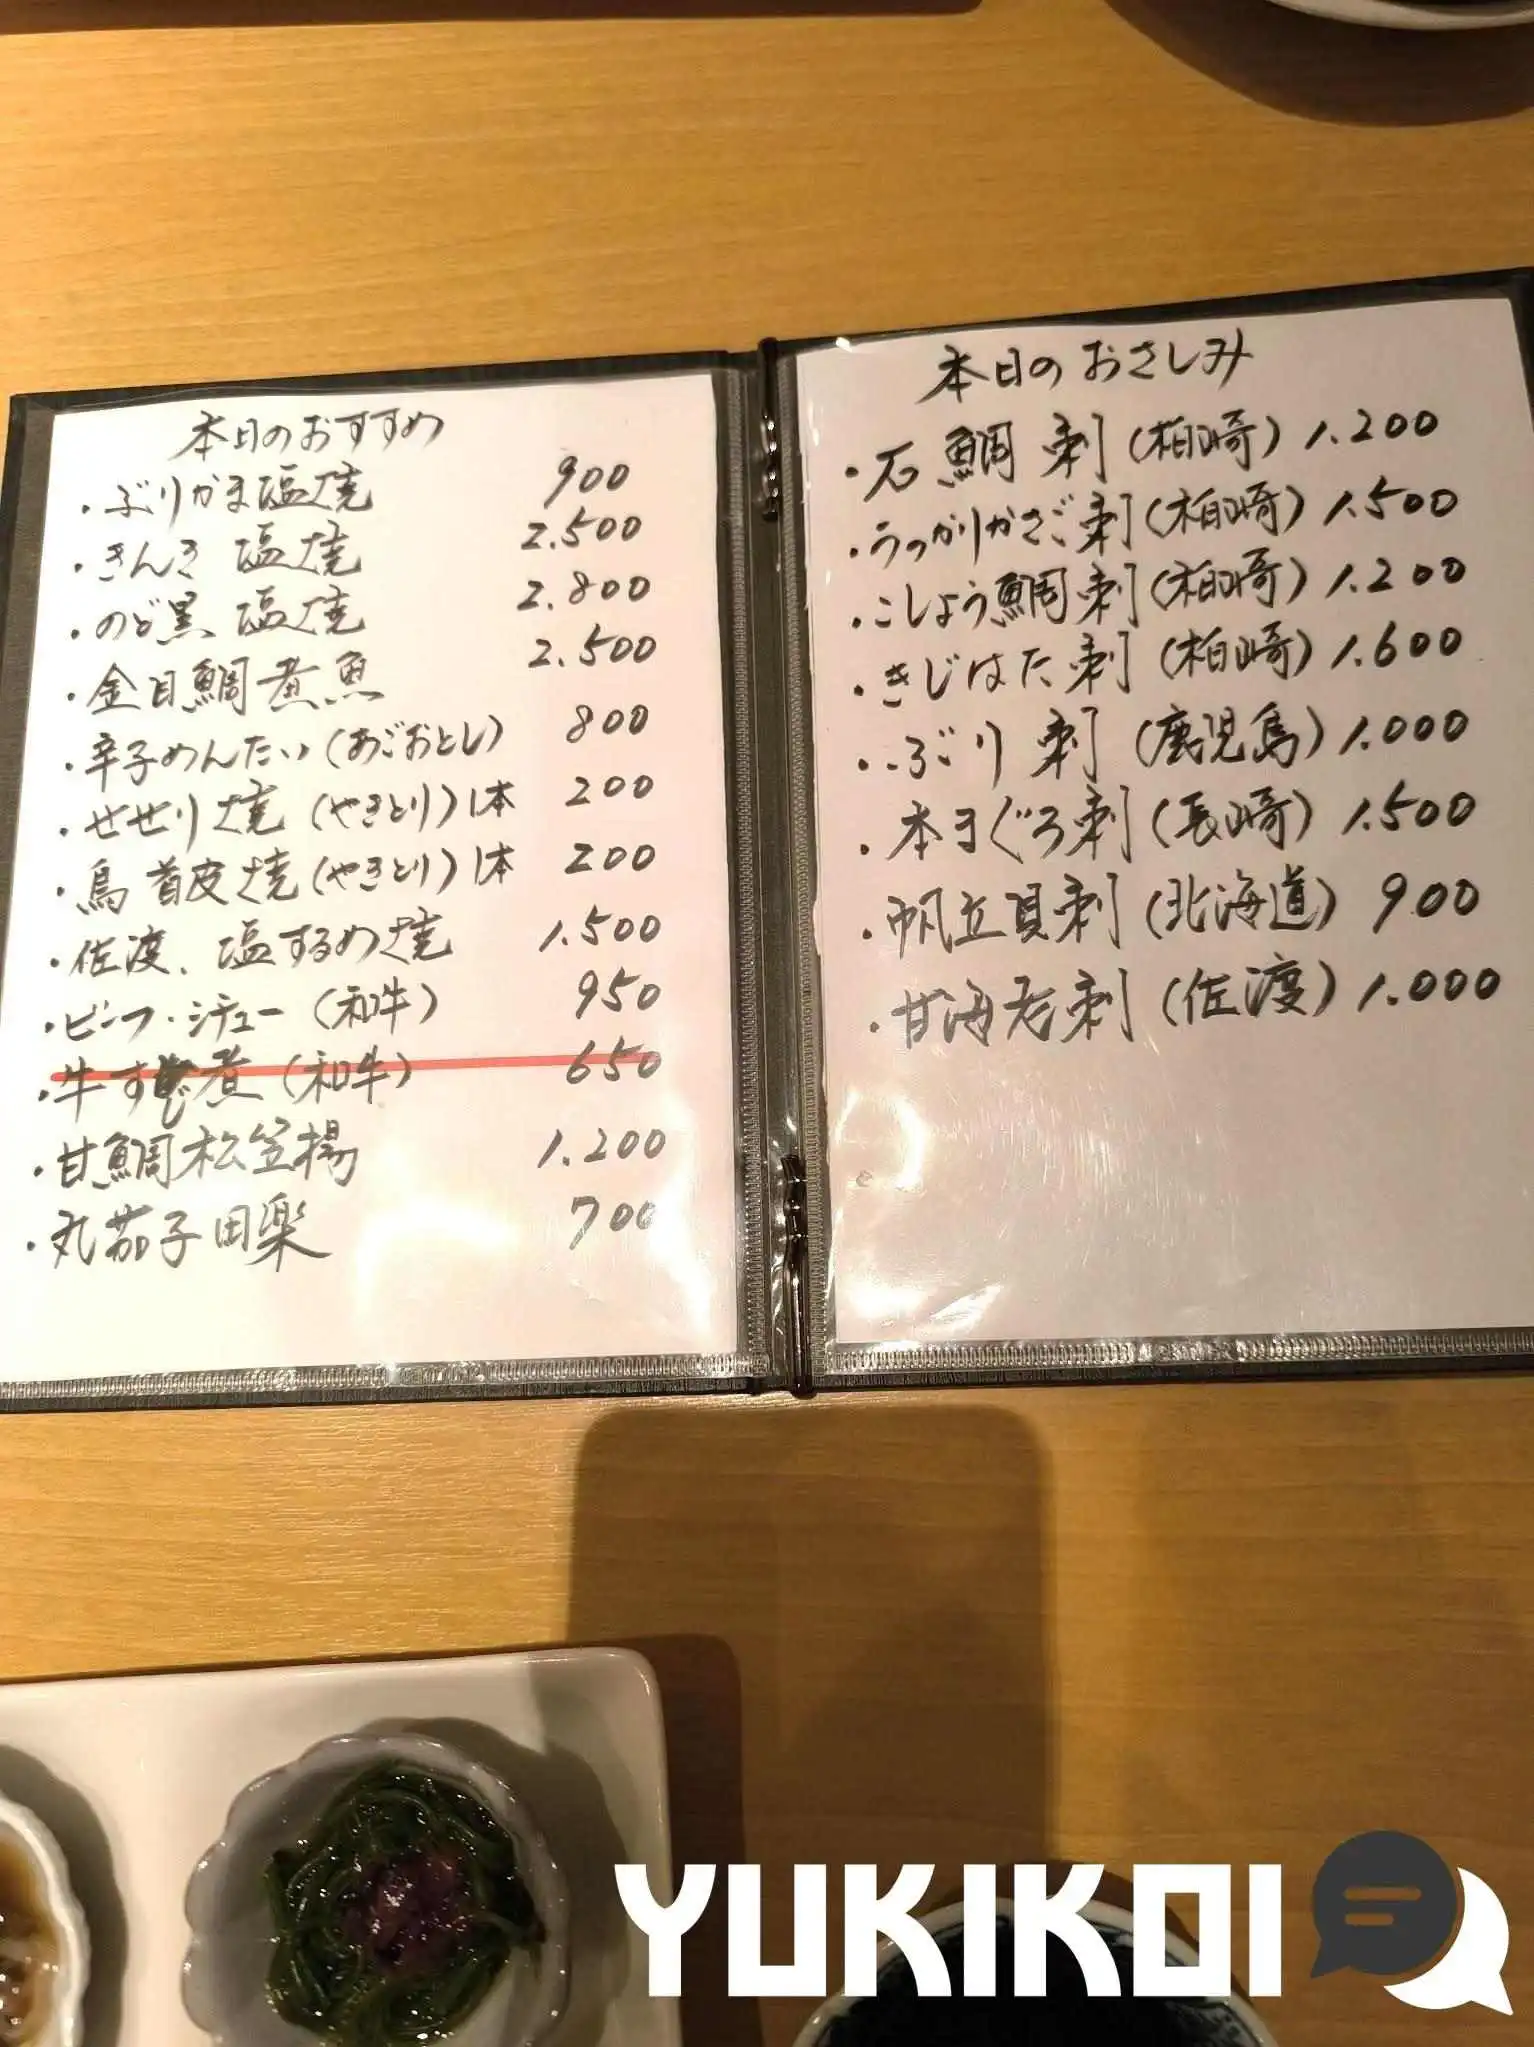 本日のおすすめ
・ぶりかま塩焼 900
・きんき 塩焼 2.500
・のど黒 塩焼 2.800
・金目鯛煮魚 2.500
・辛子めんたい(あごおとし) 800
・せせり焼(やきとり)1本 200
・鳥首皮焼(やきとり)1本 200
・佐渡、塩するめ焼 1.500
・ビーフ・シチュー(和牛) 950
・牛すじ煮(和牛) 650
・甘鯛松笠揚 1.200
・丸茄子田楽 700
本日のおさしみ
・石鯛 刺(柏崎) 1.200
・うっかりかさご刺(柏崎) 1.500
・こしょう鯛刺(柏崎) 1.200
・きじはた刺(柏崎) 1.600
・ぶり 刺(鹿児島) 1.000
・本まぐろ刺(長崎) 1.500
・帆立貝刺(北海道) 900
・甘海老刺(佐渡) 1.000
YUKIKOI